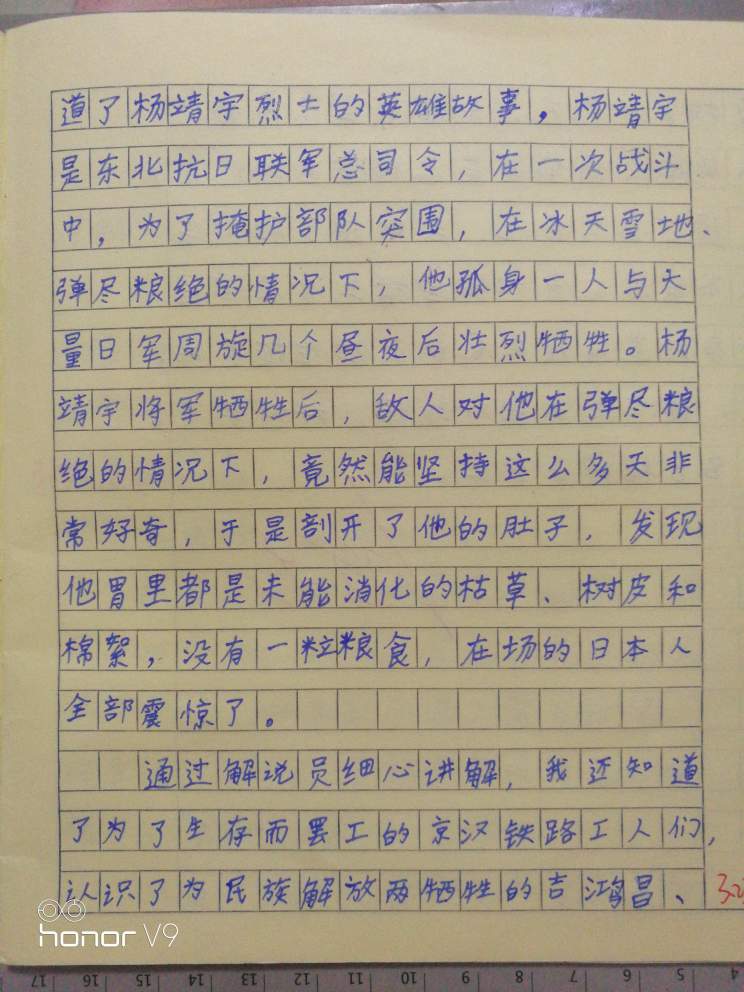 道了杨靖宇烈士的英雄故事，杨靖宇
是东北抗日联军总司令，在一次战斗
中，为了掩护部队突围，在冰天雪地、
弹尽粮绝的情况下，他孤身一人与大
量日军周旋几个昼夜后壮烈牺牲。杨
靖宇将军牺牲后，敌人对他在弹尽粮
绝的情况下，竟然能坚持这么多天非
常好奇，于是剖开了他的肚子，发现
他胃里都是未能消化的枯草、树皮和
棉絮，没有一粒粮食，在场的日本人
全部震惊了。
通过解说员细心讲解，我还知道
了为了生存而罢工的京汉铁路工人们，
认识了为民族解放而牺牲的吉鸿昌、
honor V9
17 16 15 14 13 12 11 10 9 8 7 6 5 4